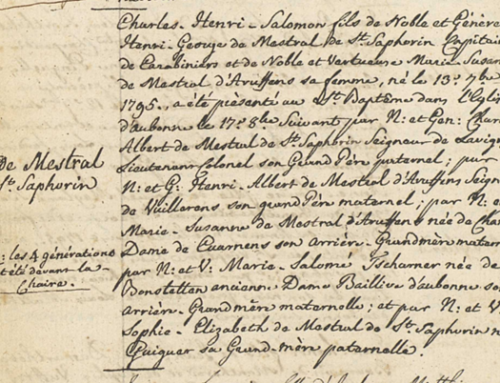 Charles-Henri-Salomon fils de Noble et Génére
Henri-George de Mestral de St. Saphorin Capitai
de Carabiniers et de Noble et Vertueuse Marie-Susan
de Mestral d'Aruffens sa femme, né le 13e. 7br
1795, a été présenté au St. Baptême dans l'Eglis
d'Aubonne le 17e 8bre Suivant par N: et Gen: Char
Albert de Mestral de St. Saphorin Seigneur de Lavign
Lieutenant Colonel son Grand Père paternel; par
N: et G: Henri-Albert de Mestral d'Aruffens Seigne
de Vuillerens son grand Père maternel; par N: et
Marie-Susanne de Mestral d'Aruffens née de Cha
Dame de Cuarnens son arrière-Grandmère matern
par N: et V: Marie-Salomé Tscharner née de
Bonstetten ancienne Dame Baillive d'aubonne so
arrière-Grandmère maternelle; et par N: et V
Sophie-Elizabeth de Mestral de St. Saphorin n
Guiguer sa Grand-mère paternelle.
De Mestral
St. Saphorin
: les 4 génératione
t été devant la
Chaire.